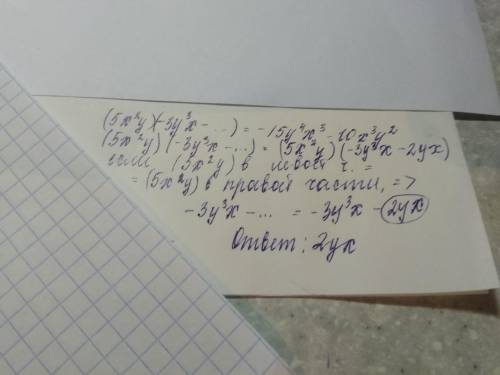 (5x²y)(-3y³x - ...) = -15y⁴x³ - 10x³y²
(5x²y)(-3y³x - ...) = (5x²y)(-3y³x - 2yx)
если (5x²y) в левой ч. =
= (5x²y) в правой части, =>
-3y³x - ... = -3y³x - 2yx
Ответ: 2yx